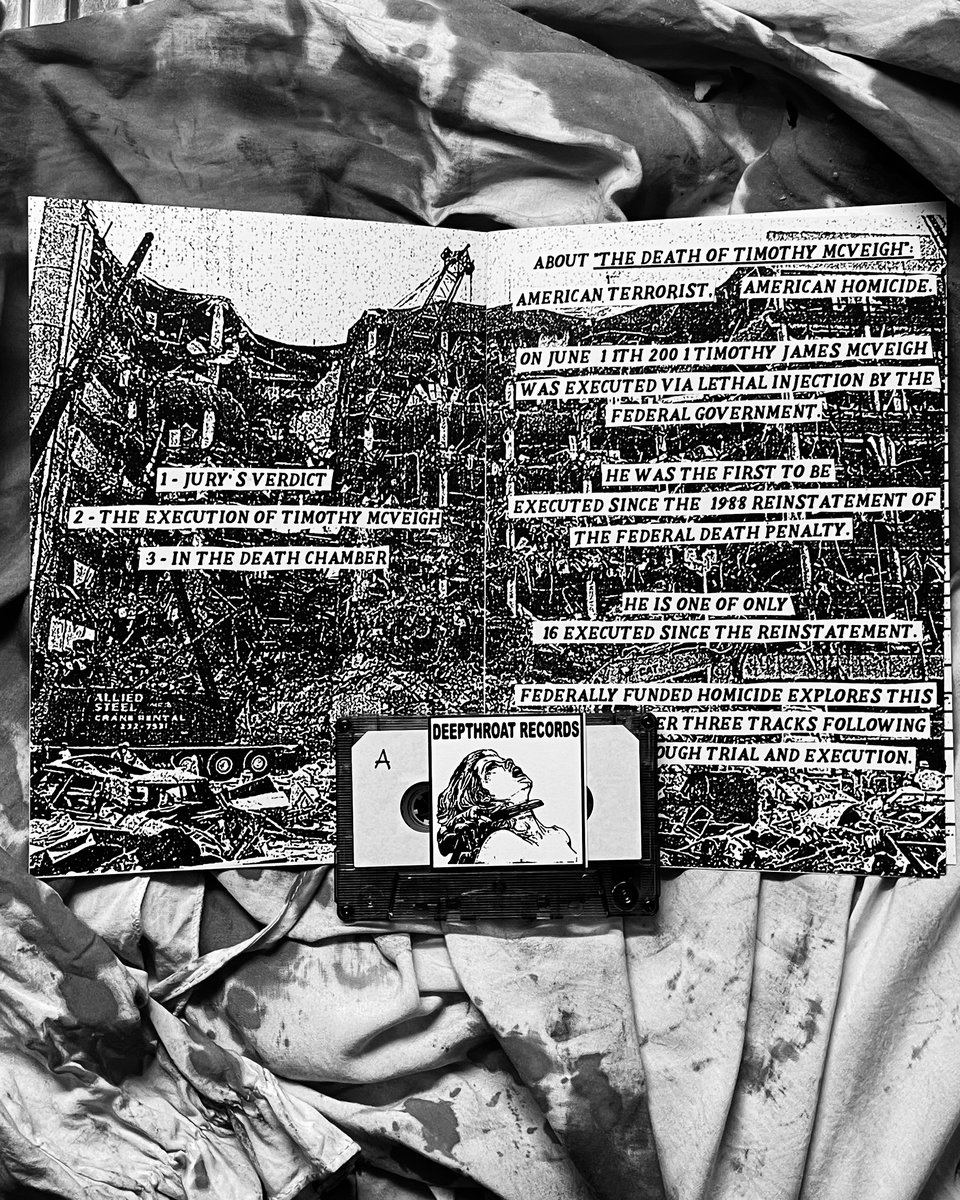 1 - JURY'S VERDICT
2 - THE EXECUTION OF TIMOTHY MCVEIGH
3 - IN THE DEATH CHAMBER
ALLIED
STEEL
CRANE RENTAL
ABOUT "THE DEATH OF TIMOTHY MCVEIGH":
AMERICAN TERRORIST. AMERICAN HOMICIDE.
ON JUNE 11TH 2001 TIMOTHY JAMES MCVEIGH
WAS EXECUTED VIA LETHAL INJECTION BY THE
FEDERAL GOVERNMENT.
HE WAS THE FIRST TO BE
EXECUTED SINCE THE 1988 REINSTATEMENT OF
THE FEDERAL DEATH PENALTY.
HE IS ONE OF ONLY
16 EXECUTED SINCE THE REINSTATEMENT.
FEDERALLY FUNDED HOMICIDE EXPLORES THIS
ER THREE TRACKS FOLLOWING
OUGH TRIAL AND EXECUTION.
A
DEEPTHROAT RECORDS